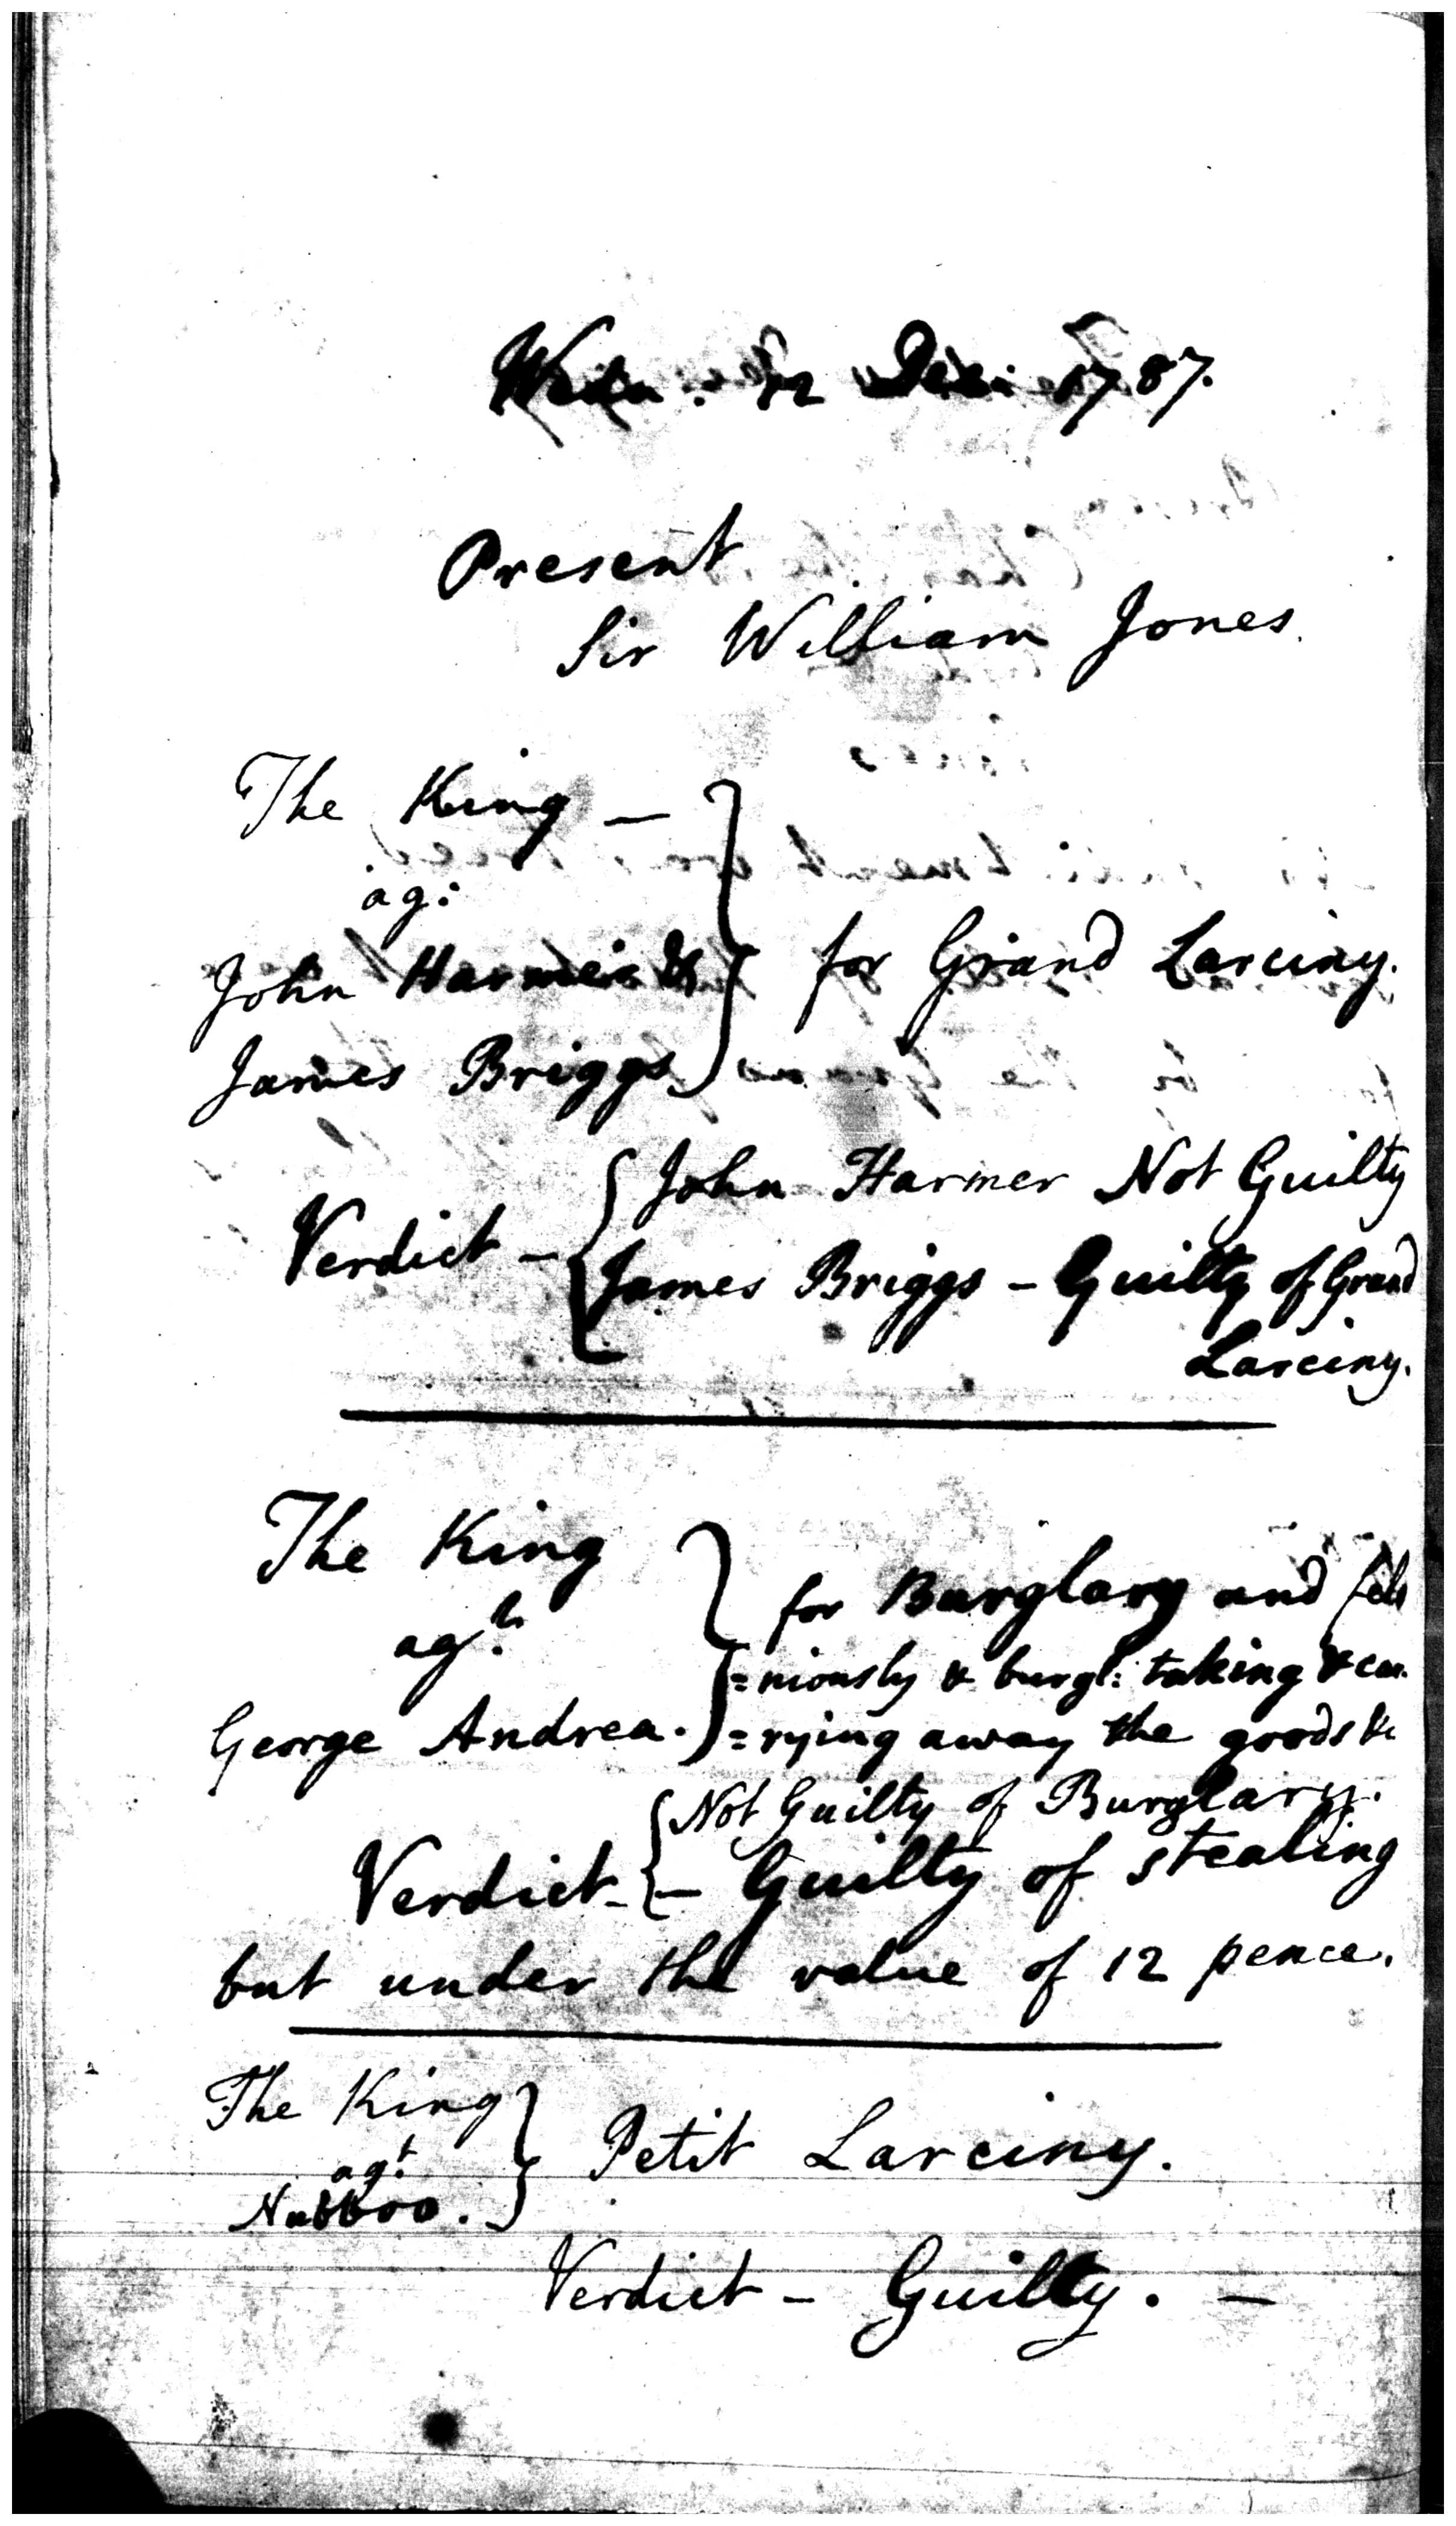 Wedn. 12 Dec: 1787.
Present
Sir William Jones.
The King —
ag:
John Harmer &
James Briggs
} for Grand Larciny.
Verdict — { John Harmer Not Guilty
James Briggs — Guilty of Grand
Larciny.
The King
agt
George Andrea.
} for Burglary and felo
=niously & burgl: taking & car
=rying away the goods &c
Verdict — { Not Guilty of Burglary.
— Guilty of stealing
but under the value of 12 pence.
The King
agt
Nubboo.
} Petit Larciny.
Verdict — Guilty. —